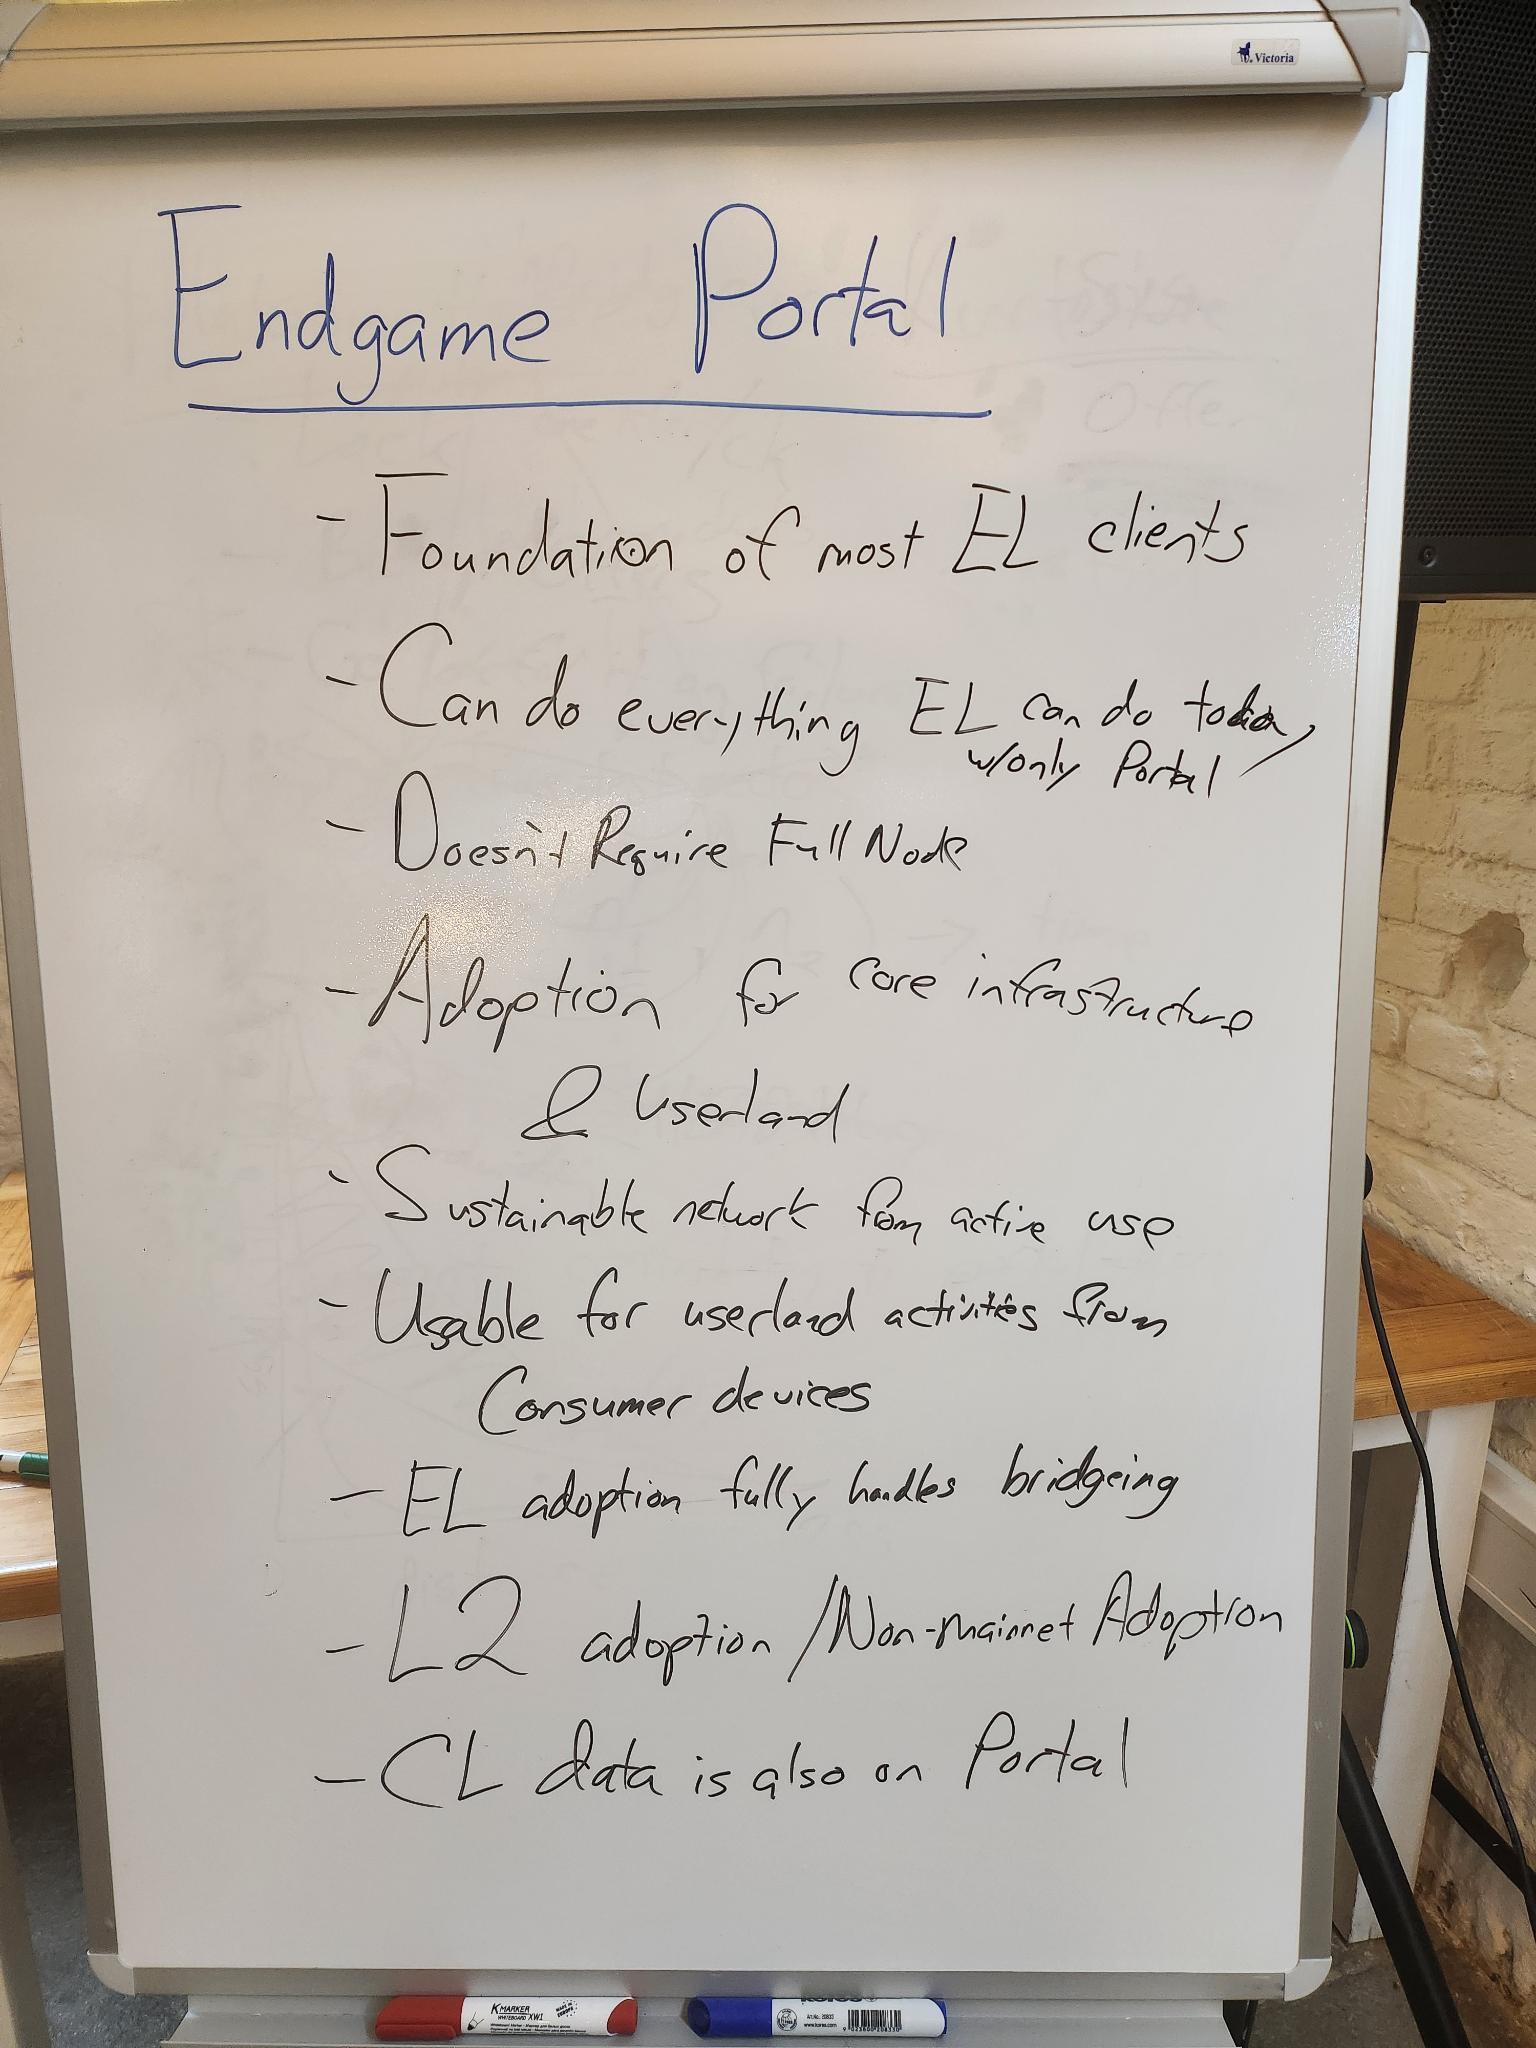 Victoria
Endgame Portal
- Foundation of most EL clients
- Can do everything EL can do today
w/only Portal
- Doesn't Require Full Node
- Adoption for core infrastructure
& userland
- Sustainable network from active use
- Usable for userland activities from
Consumer devices
- EL adoption fully handles bridgeing
- L2 adoption / Non-mainnet Adoption
- CL data is also on Portal
K MARKER
WHITEBOARD XW1
MADE IN EUROPE
kores
www.kores.com